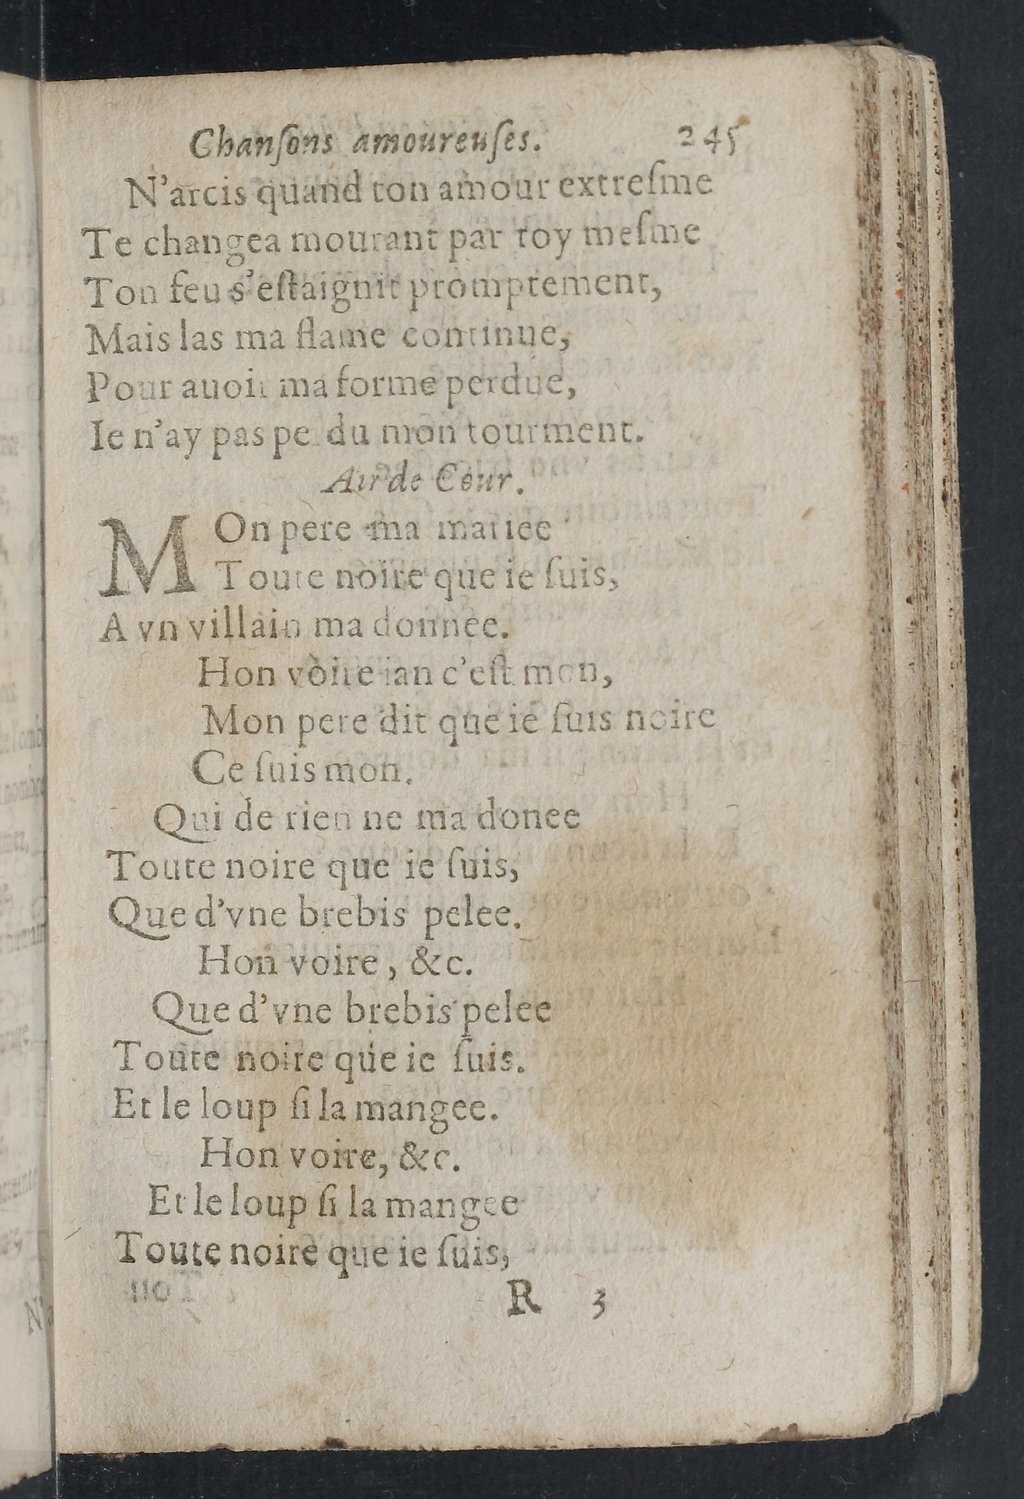 Chanſons amoureuſes. 245
N'arcis quand ton amour extreſme
Te changea mourant par toy meſme
Ton feu s'eſtaignit promptement,
Mais las ma flame continue,
Pour auoir ma forme perdue,
Ie n'ay pas pe du mon tourment.
Air de Cour.
MOn pere ma mariee
Toute noire que ie ſuis,
A vn villain ma donnee.
Hon voire ian c'eſt mon,
Mon pere dit que ie ſuis noire
Ce ſuis mon.
Qui de rien ne ma donee
Toute noire que ie ſuis,
Que d'vne brebis pelee.
Hon voire, &c.
Que d'vne brebis pelee
Toute noire que ie ſuis.
Et le loup ſi la mangee.
Hon voire, &c.
Et le loup ſi la mangee
Toute noire que ie ſuis,
R 3